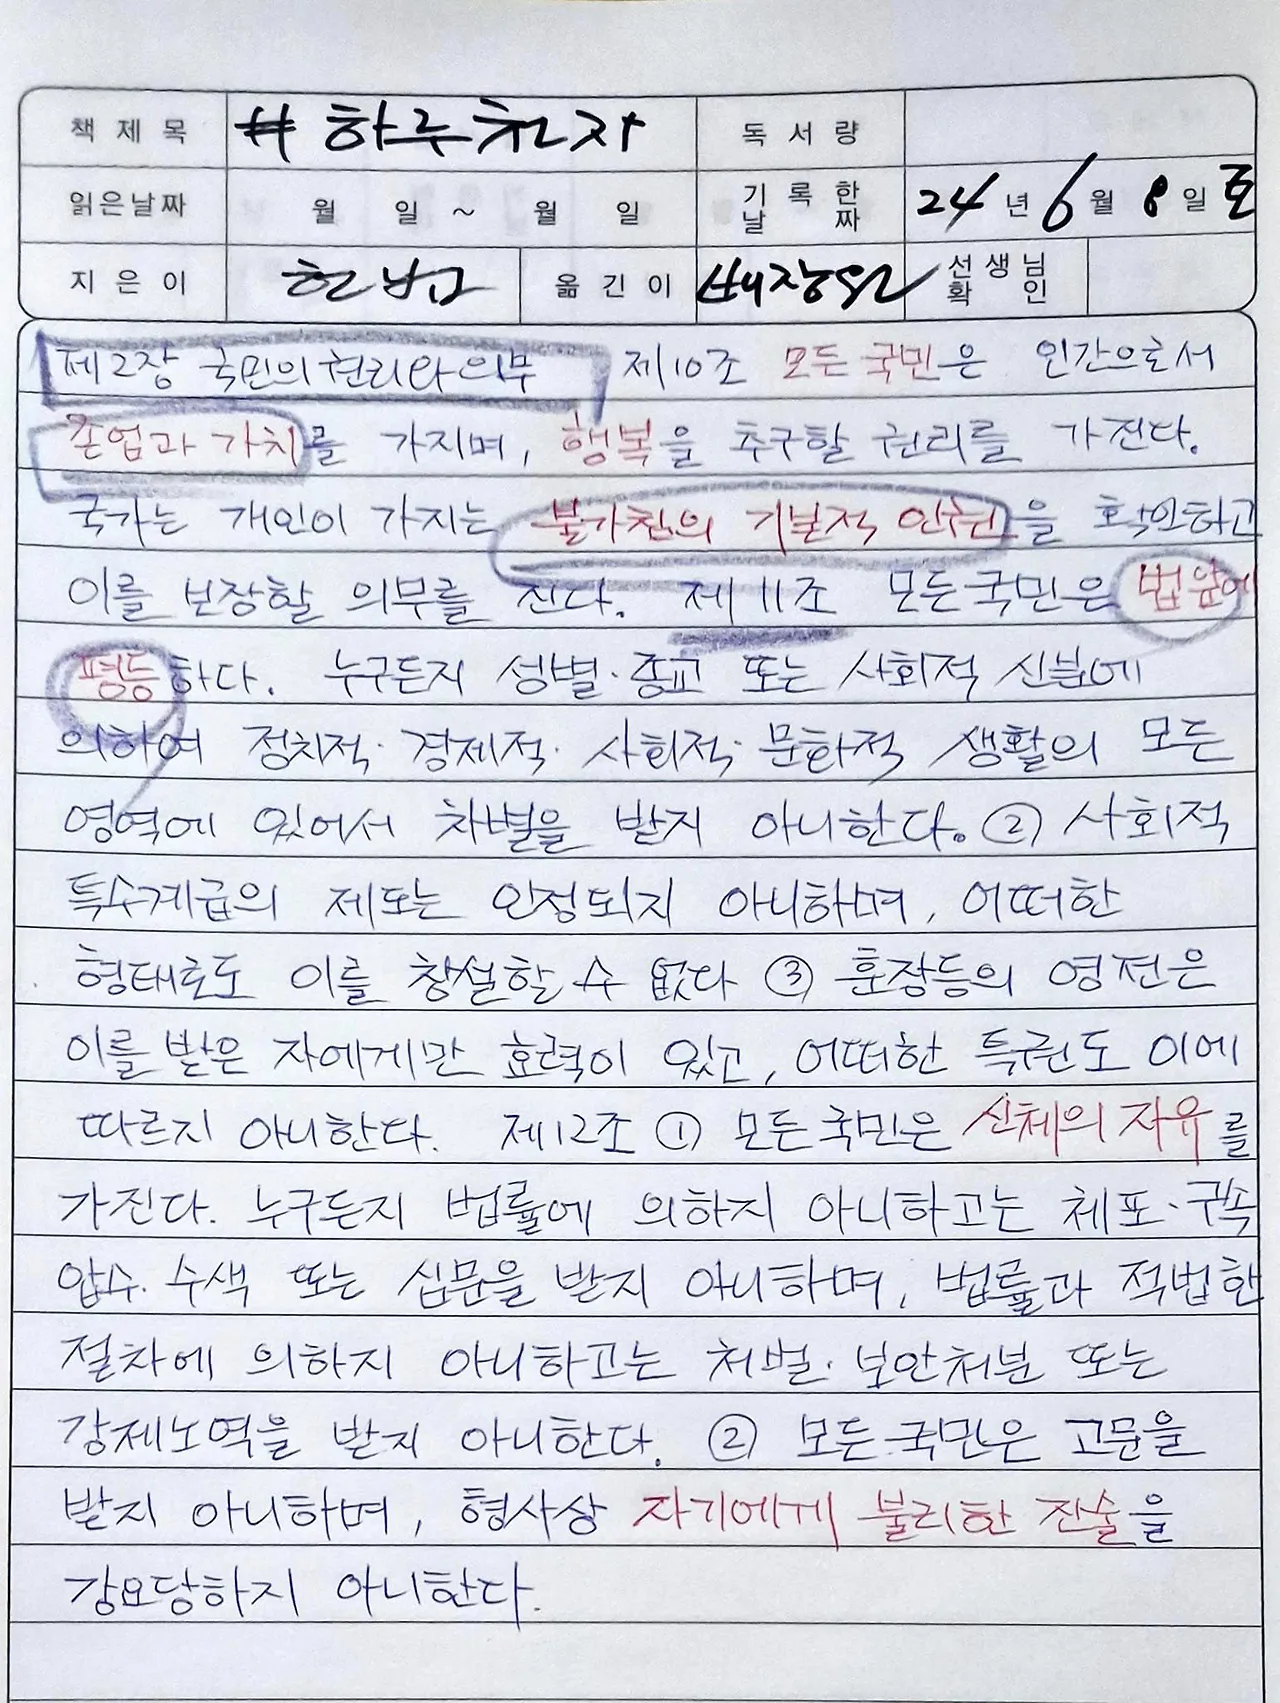 책 제목 #하루천자 독서량
읽은날짜 월 일 ~ 월 일 기록한날짜 24년 6월 8일 토
지은이 헌법 옮긴이 선생님확인
제2장 국민의 권리와 의무 제10조 모든 국민은 인간으로서
존엄과 가치를 가지며, 행복을 추구할 권리를 가진다.
국가는 개인이 가지는 불가침의 기본적 인권을 확인하고
이를 보장할 의무를 진다. 제11조 모든 국민은 법앞에
평등하다. 누구든지 성별·종교 또는 사회적 신분에
의하여 정치적·경제적·사회적·문화적 생활의 모든
영역에 있어서 차별을 받지 아니한다. ② 사회적
특수계급의 제도는 인정되지 아니하며, 어떠한
형태로도 이를 창설할 수 없다 ③ 훈장등의 영전은
이를 받은 자에게만 효력이 있고, 어떠한 특권도 이에
따르지 아니한다. 제12조 ① 모든 국민은 신체의 자유를
가진다. 누구든지 법률에 의하지 아니하고는 체포·구속
압수·수색 또는 심문을 받지 아니하며, 법률과 적법한
절차에 의하지 아니하고는 처벌·보안처분 또는
강제노역을 받지 아니한다. ② 모든 국민은 고문을
받지 아니하며, 형사상 자기에게 불리한 진술을
강요당하지 아니한다.